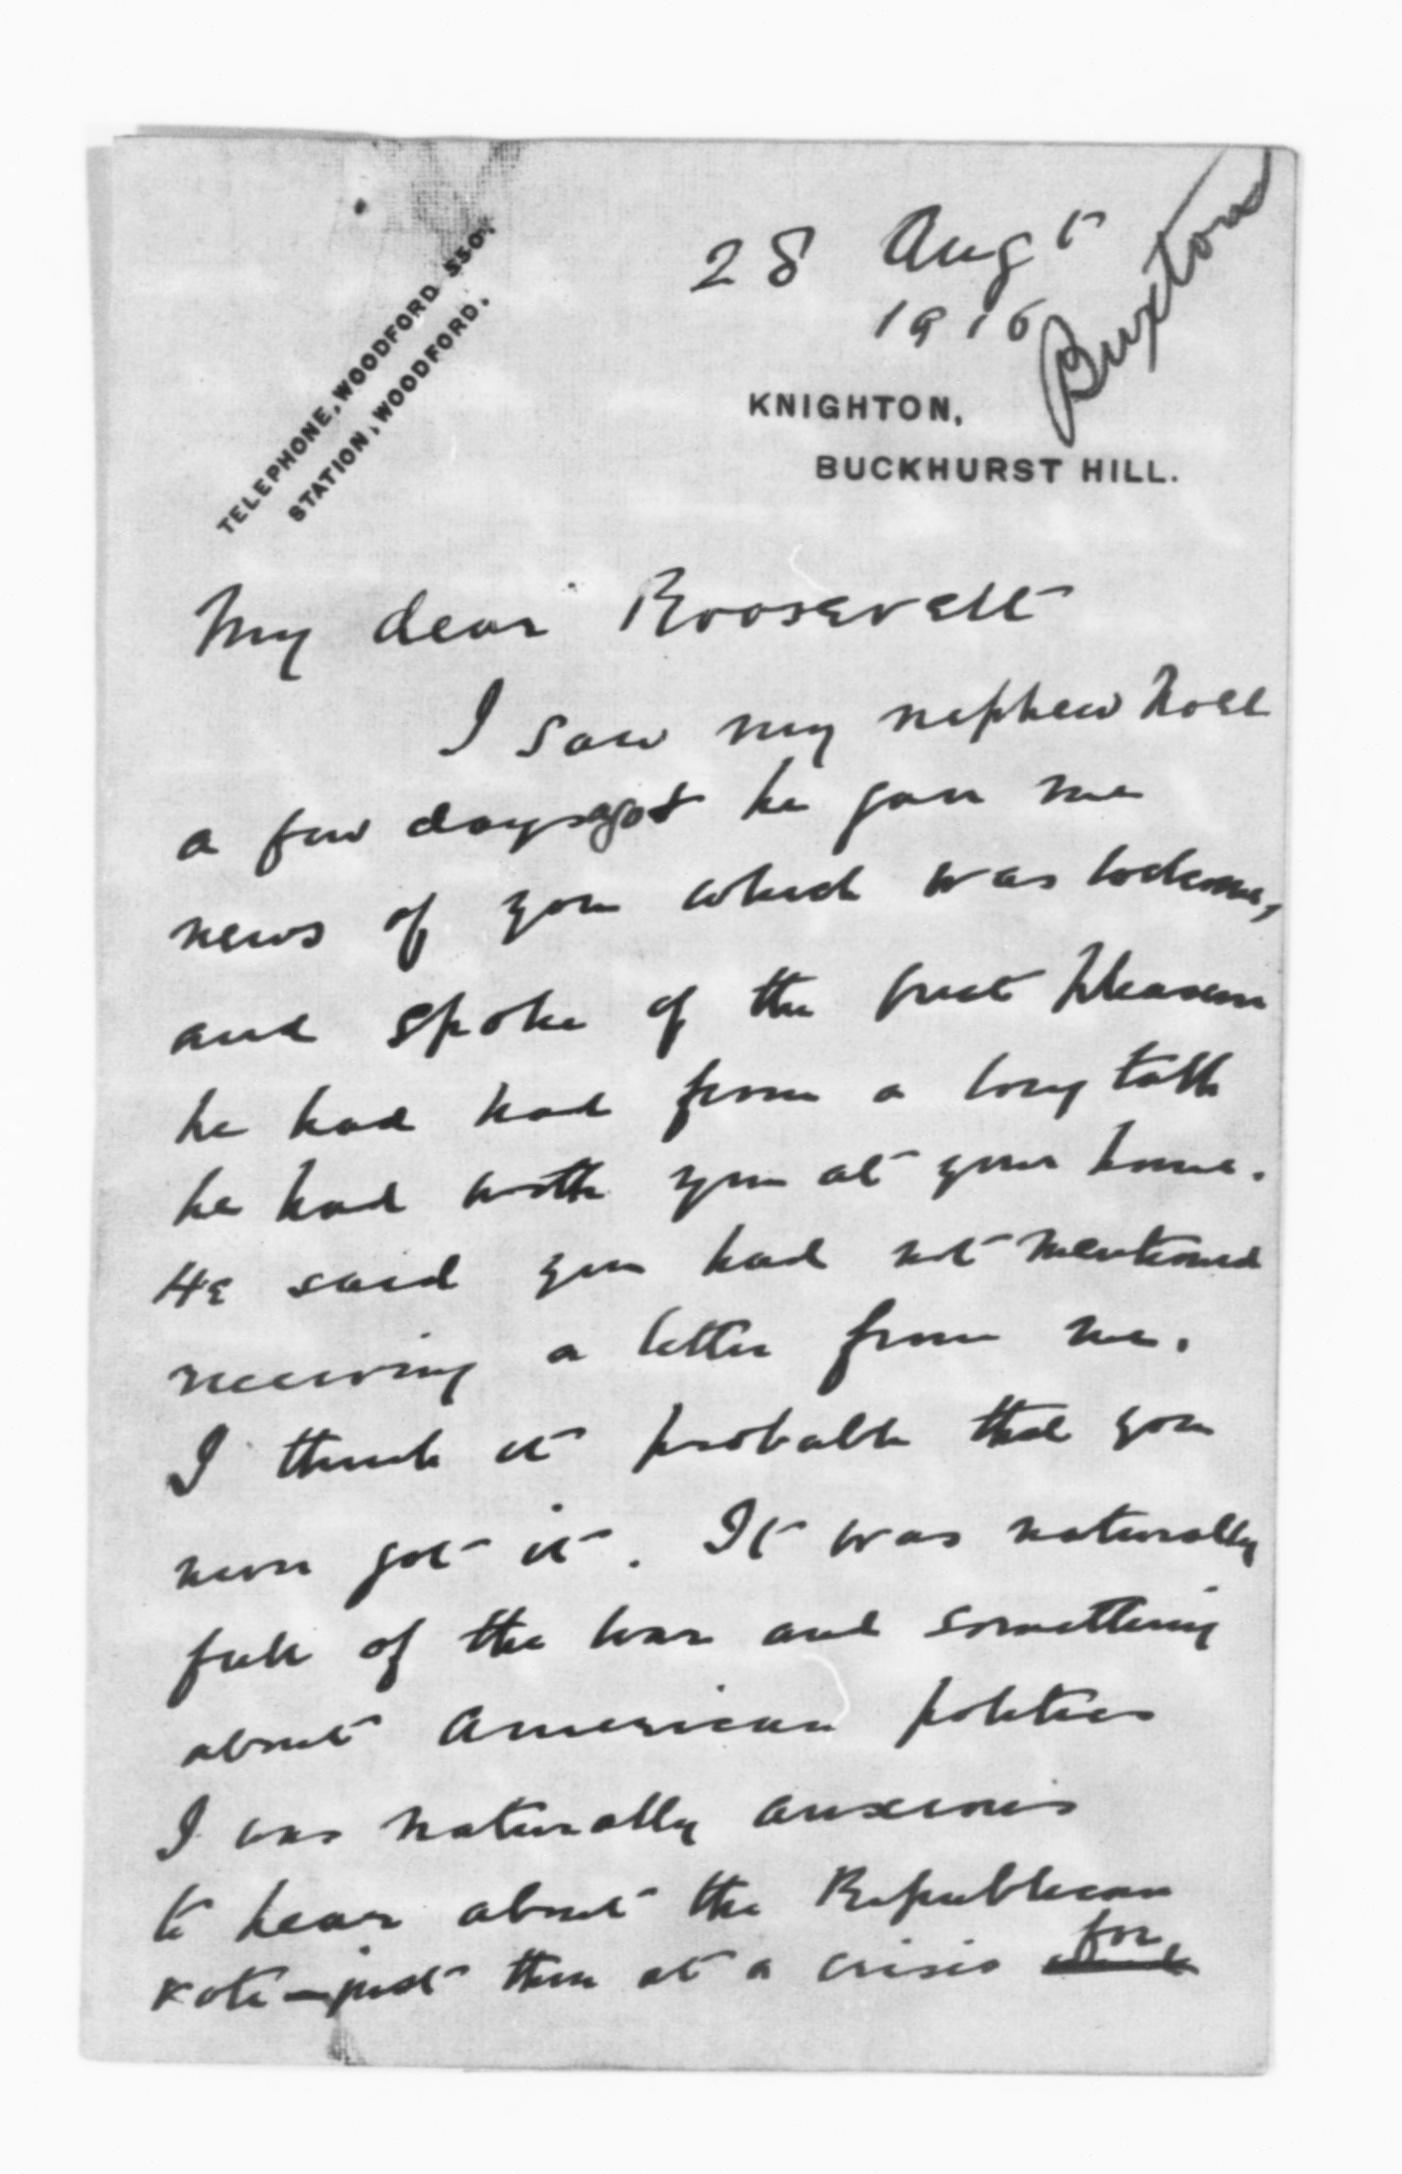 28 Augt
1916
Buxton
TELEPHONE, WOODFORD 550.
STATION, WOODFORD.
KNIGHTON,
BUCKHURST HILL.
My dear Roosevelt
I saw my nephew Noel
a few days ago & he gave me
news of you which was welcome,
and spoke of the great pleasure
he had had from a long talk
he had with you at your home.
He said you had not mentioned
receiving a letter from me.
I think it probable that you
never got it. It was naturally
full of the war and something
about American politics
I was naturally anxious
to hear about the Republican
vote - just then at a crisis for